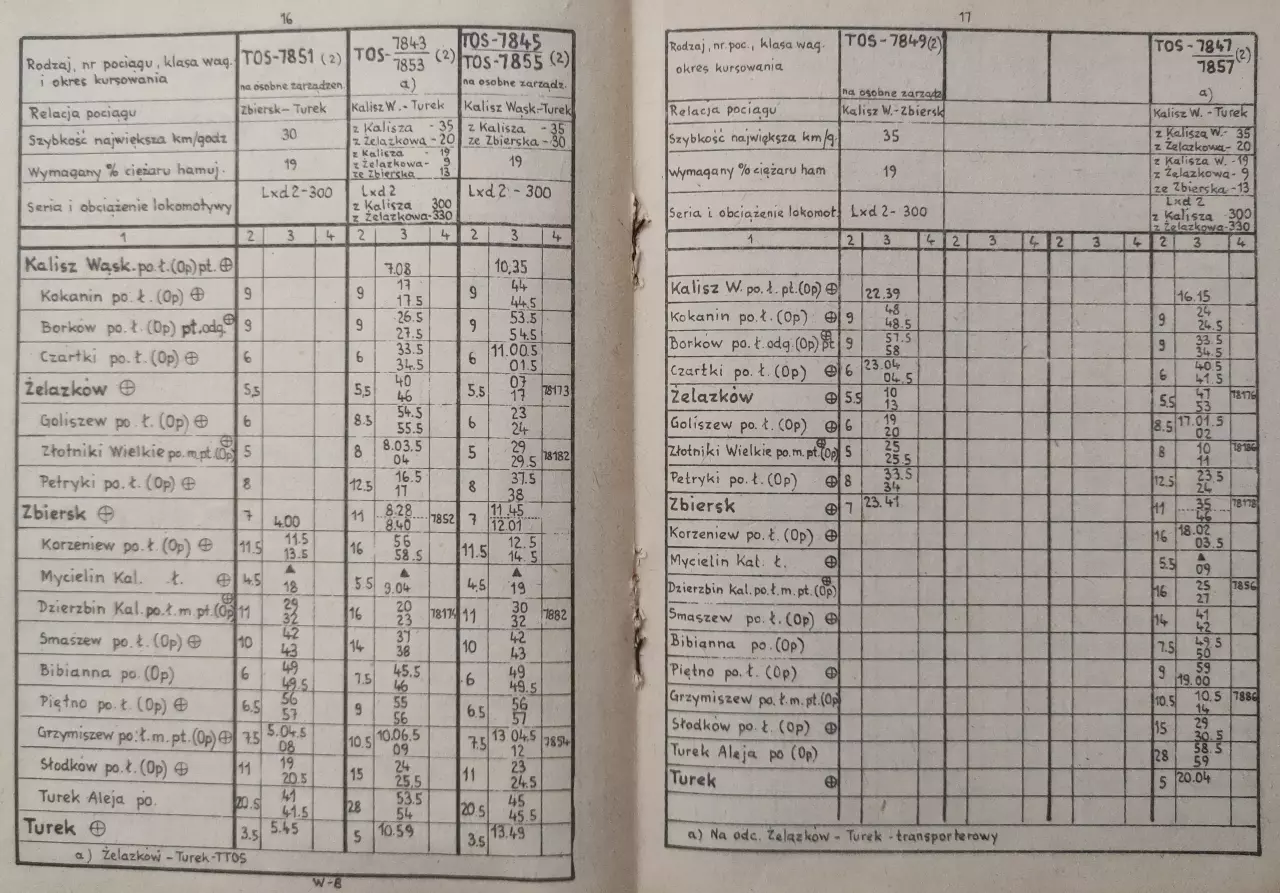 16
Rodzaj, nr pociągu, klasa wag. i okres kursowania | TOS-7851 (2) na osobne zarządzen. | TOS-7843/7853 (2) a) | TOS-7845 TOS-7855 (2) na osobne zarządz.
Relacja pociągu | Zbiersk-Turek | Kalisz W.-Turek | Kalisz Wąsk-Turek
Szybkość największa km/godz | 30 | z Kalisza - 35 z Żelazkowa - 20 | z Kalisza - 35 ze Zbierska - 30
Wymagany % ciężaru hamuj. | 19 | z Kalisza - 19 z Żelazkowa - 9 ze Zbierska 13 | 19
Seria i obciążenie lokomotywy | Lxd2-300 | Lxd2 z Kalisza 300 z Żelazkowa-330 | Lxd2 - 300
1 | 2 | 3 | 4 | 2 | 3 | 4 | 2 | 3 | 4
Kalisz Wąsk.po.ł.(Op)pt. ⊕ | 7.08 | 10,35
Kokanin po.ł.(Op) ⊕ | 9 | 9 | 17 17.5 | 9 | 44 44.5
Borków po.ł.(Op) pt.odg. ⊕ | 9 | 9 | 26.5 27.5 | 9 | 53.5 54.5
Czartki po.ł.(Op) ⊕ | 6 | 6 | 33.5 34.5 | 6 | 11.00.5 01.5
Żelazków ⊕ | 5,5 | 5,5 | 40 46 | 5,5 | 07 17 | 78173
Goliszew po.ł.(Op) ⊕ | 6 | 8.5 | 54.5 55.5 | 6 | 23 24
Złotniki Wielkie po.m.pt.(Op) ⊕ | 5 | 8 | 8.03.5 04 | 5 | 29 29.5 | 78182
Petryki po.ł.(Op) ⊕ | 8 | 12.5 | 16.5 17 | 8 | 37.5 38
Zbiersk ⊕ | 7 | 4.00 | 11 | 8.28 8.40 | 7852 | 7 | 11.45 12.01
Korzeniew po.ł.(Op) ⊕ | 11.5 | 11.5 13.5 | 16 | 56 58.5 | 11.5 | 12.5 14.5
Mycielin Kal. ł. ⊕ | 4.5 | ▲ 18 | 5.5 | ▲ 9.04 | 4,5 | ▲ 19
Dzierzbin Kal.po.ł.m.pt.(Op) ⊕ | 11 | 29 32 | 16 | 20 23 | 78174 | 11 | 30 32 | 7882
Smaszew po.ł.(Op) ⊕ | 10 | 42 43 | 14 | 37 38 | 10 | 42 43
Bibianna po.(Op) | 6 | 49 49.5 | 7.5 | 45.5 46 | 6 | 49 49.5
Piętno po.ł.(Op) ⊕ | 6,5 | 56 57 | 9 | 55 56 | 6.5 | 56 57
Grzymiszew po.ł.m.pt.(Op) ⊕ | 7.5 | 5.04.5 08 | 10.5 | 10.06.5 09 | 7.5 | 13 04.5 12 | 7854
Słodków po.ł.(Op) ⊕ | 11 | 19 20.5 | 15 | 24 25.5 | 11 | 23 24.5
Turek Aleja po. | 20.5 | 41 41.5 | 28 | 53.5 54 | 20.5 | 45 45.5
Turek ⊕ | 3.5 | 5.45 | 5 | 10.59 | 3.5 | 13.49
a) Żelazków - Turek-TTOS
W-8
17
Rodzaj, nr poc., klasa wag. okres kursowania | TOS-7849(2) na osobne zarządz | TOS-7847/7857 (2) a)
Relacja pociągu | Kalisz W.-Zbiersk | Kalisz W. - Turek
Szybkość największa km/g. | 35 | z Kalisza W.- 35 z Żelazkowa- 20
Wymagany % ciężaru ham | 19 | z Kalisza W. -19 z Żelazkowa- 9 ze Zbierska -13
Seria i obciążenie lokomot. | Lxd2- 300 | Lxd2 z Kalisza 300 z Żelazkowa-330
1 | 2 | 3 | 4 | 2 | 3 | 4 | 2 | 3 | 4 | 2 | 3 | 4
Kalisz W. po.ł.pt.(Op) ⊕ | 22.39 | 16.15
Kokanin po.ł.(Op) ⊕ | 9 | 48 48.5 | 9 | 24 24.5
Borków po.ł.odg.(Op)pt ⊕ | 9 | 57.5 58 | 9 | 33.5 34.5
Czartki po.ł.(Op) ⊕ | 6 | 23.04 04.5 | 6 | 40.5 41.5
Żelazków ⊕ | 5.5 | 10 13 | 5.5 | 47 53 | 78176
Goliszew po.ł.(Op) ⊕ | 6 | 19 20 | 8.5 | 17.01.5 02
Złotniki Wielkie po.m.pt.(Op) ⊕ | 5 | 25 25.5 | 8 | 10 11 | 78186
Petryki po.ł.(Op) ⊕ | 8 | 33.5 34 | 12.5 | 23.5 24
Zbiersk ⊕ | 7 | 23.41 | 11 | 35 46 | 78178
Korzeniew po.ł.(Op) ⊕ | 16 | 18.02 03.5
Mycielin Kal. ł. ⊕ | 5.5 | ▲ 09
Dzierzbin Kal.po.ł.m.pt.(Op) ⊕ | 16 | 25 27 | 7856
Smaszew po.ł.(Op) ⊕ | 14 | 41 42
Bibianna po.(Op) | 7.5 | 49.5 50
Piętno po.ł.(Op) ⊕ | 9 | 59 19.00
Grzymiszew po.ł.m.pt.(Op) | 10.5 | 10.5 14 | 7886
Słodków po.ł.(Op) ⊕ | 15 | 29 30.5
Turek Aleja po (Op) | 28 | 58.5 59
Turek ⊕ | 5 | 20.04
a) Na odc. Żelązków - Turek - transporterowy